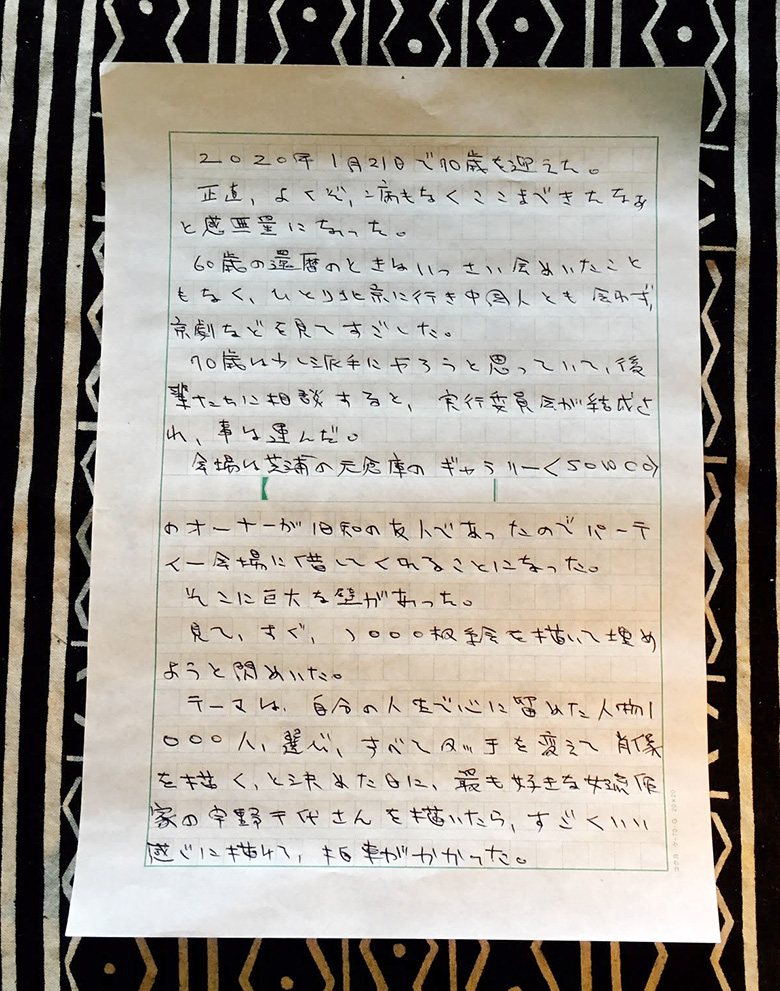 2020年1月21日で70歳を迎えた。
正直、よくぞ、病もなくここまできたなぁ
と感亜量になった。
60歳の還暦のときはいっさい会めいたこと
もなく、ひとり北京に行き中国人とも会わず、
京劇などを見てすごした。
70歳は少し派手にやろうと思っていて、後
輩たちに相談すると、実行委員会が結成さ
れ、事は運んだ。
会場は芝浦の元倉庫のギャラリー〈SOWOO〉
のオーナーが旧知の友人であったのでパーテ
ィー会場に借してくれることになった。
そこに巨大な壁があった。
見て、すぐ、1000枚絵を描いて埋め
ようと閃めいた。
テーマは、自分の人生で心に留めた人物1
000人、選び、すべてタッチを変えて肖像
を描く、と決めた日に、最も好きな女流作
家の宇野千代さんを描いたら、すごくいい
感じに描けて、拍車がかかった。